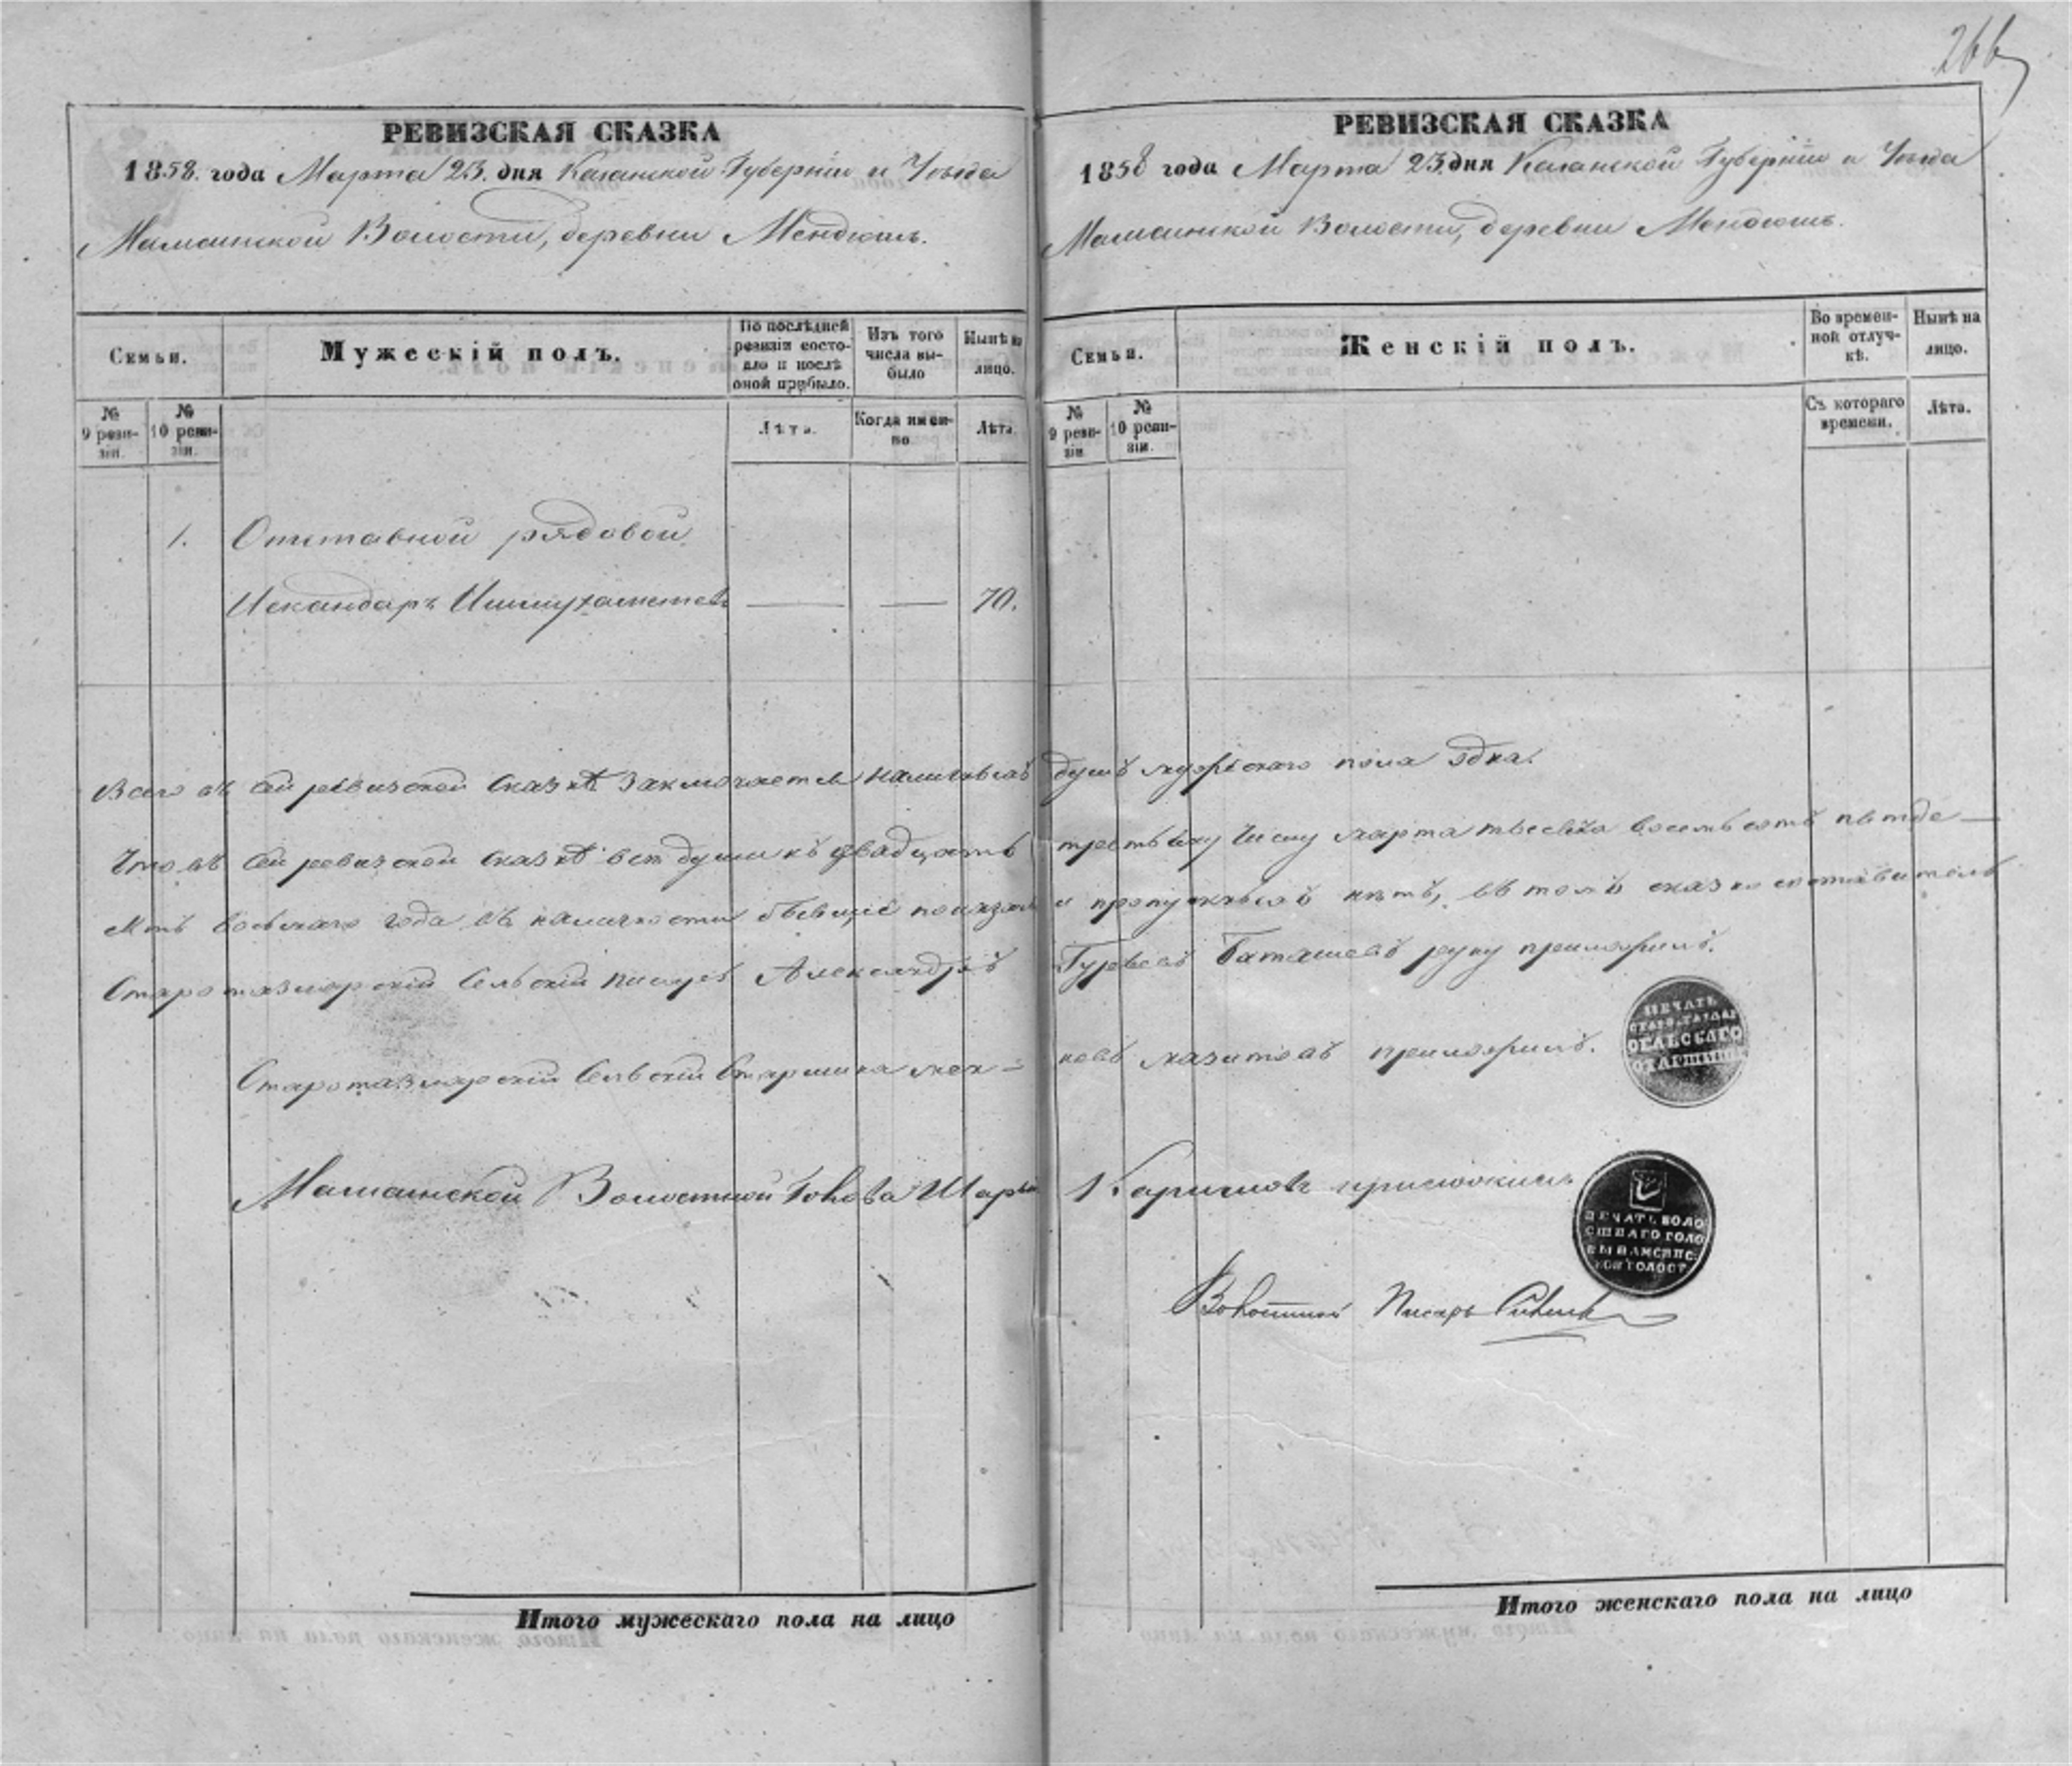 266
РЕВИЗСКАЯ СКАЗКА
1858. года Марта 23. дня Казанской Губернiи и Уѣзда
Мамсинской Волости, деревни Мендюшъ.
Семьи.
Мужескiй полъ.
По послѣдней ревизiи состояло и послѣ оной прибыло.
Изъ того числа выбыло
Нынѣ на лицо.
№ 9 ревизiи.
№ 10 ревизiи.
Лѣта.
Когда именно
Лѣта.
1. Отставной рядовой
Искандаръ Ишмухаметевъ — — 70.
РЕВИЗСКАЯ СКАЗКА
1858 года Марта 23. дня Казанской Губернiи и Уѣзда
Мамсинской Волости, деревни Мендюшъ.
Семьи.
Женскiй полъ.
Во временной отлучкѣ.
Нынѣ на лицо.
№ 9 ревизiи
№ 10 ревизiи.
Съ котораго времени.
Лѣта.
Всего въ сей ревизской сказкѣ заключается наличныхъ душъ мужскаго пола одна.
Что въ сей ревизской сказкѣ все души къ двадцать третьему числу марта тысяча восемьсотъ пятде-
сятъ восьмаго года въ наличности бывщiе показаны и пропускныхъ нѣтъ, въ томъ сказко составитель
Старотазларскiй Сельскiй писарь Александръ Гурьевъ Баташевъ руку приложилъ.
Старотазларскiй Сельскiй Старшина мазитовъ приложилъ.
ПЕЧАТЬ
СЕЛЬСКАГО
СТАРШИНЫ
Мамсинской Волостной Голова Каримовъ приложилъ
ПЕЧАТЬ ВОЛО
СТНАГО ГОЛО
ВЫ МАМСИНС:
КОЙ ВОЛОСТ
Волостной Писарь
Итого мужескаго пола на лицо
Итого женскаго пола на лицо